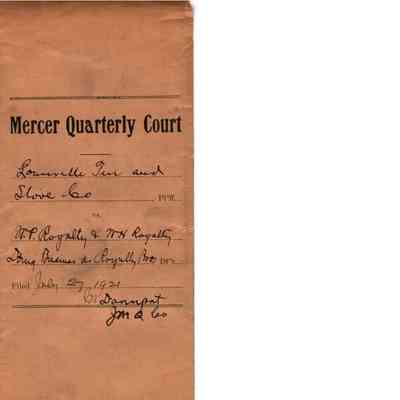 Mercer Quarterly Court
Louisville Tin and
Stove Co
vs
W.P. Royalty & W H Royalty
Doing Business as Royalty Bro
Filed July 27 1921